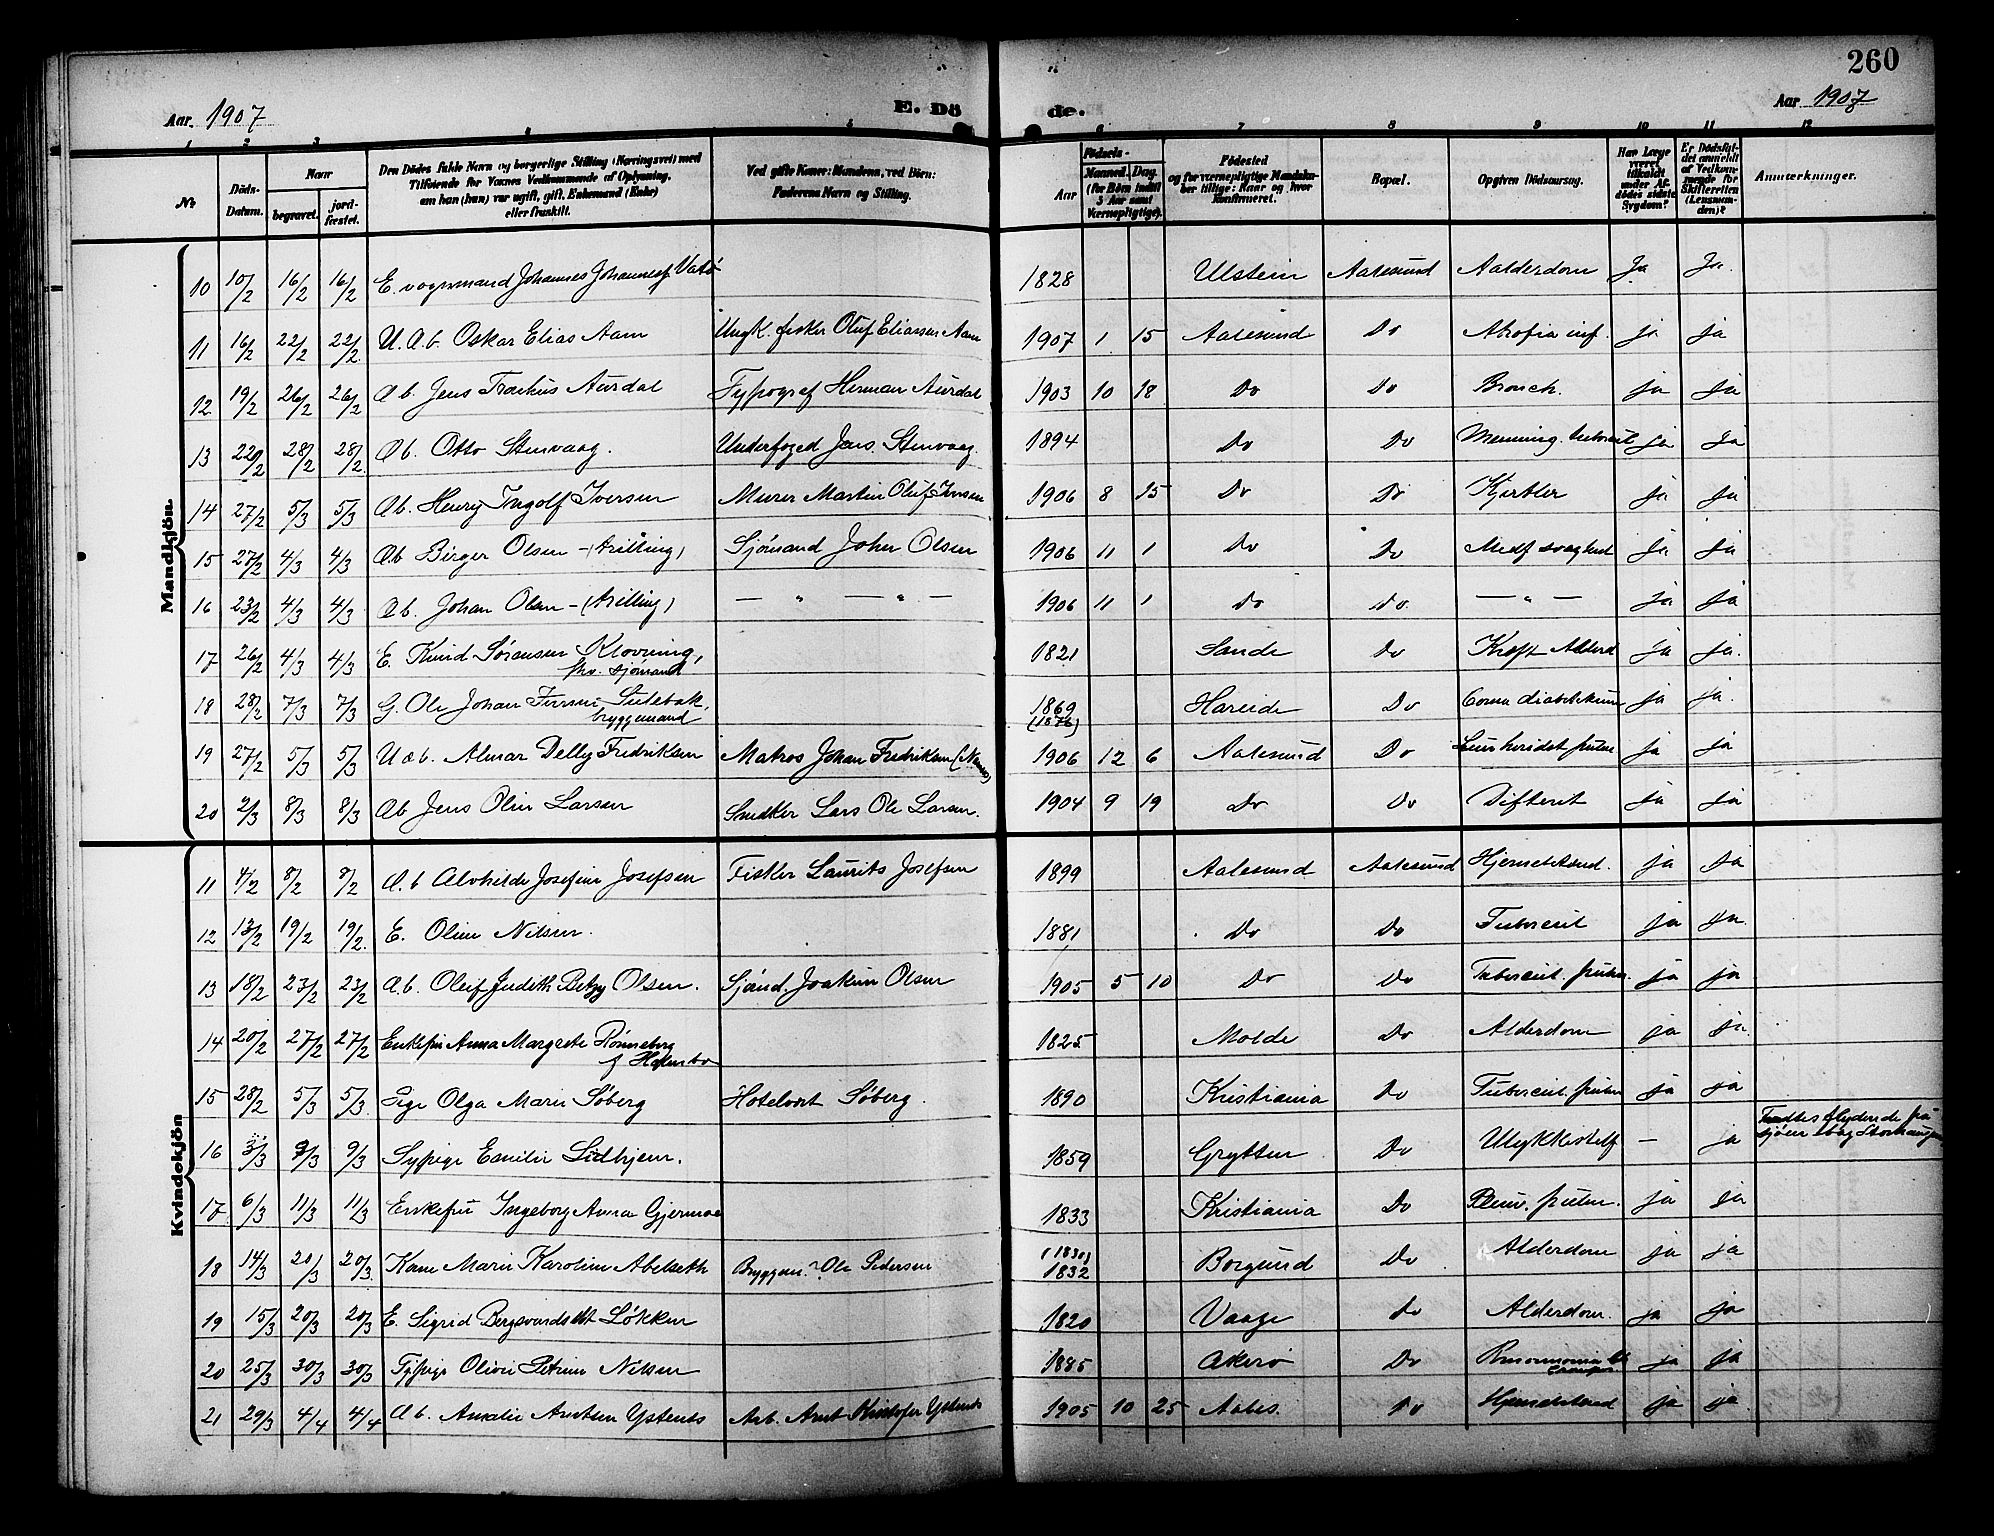 260
Aar 1907 E. Dö de. Aar 1907
1 2 3 4 5 6 7 8 9 10 11 12
No
Döds-Datum.
Naar
begravet.
jord-fæstet.
Den Dødes fulde Navn og borgerlige Stilling (Næringsvei) med
Tilføiende for Voxnes Vedkommende af Oplysning,
om han (hun) var ugift, gift, Enkemand (Enke)
eller fraskilt.
Ved gifte Koner: Mandens, ved Börn:
Faderens Navn og Stilling.
Födsels-
Aar
Maaned. Dag.
(for Börn indtil
3 Aar samt
Værnepligtige).
Födested
og for værnepligtige Mandskaber tillige: Naar og hvor konfirmeret.
Bopæl.
Opgiven Dödsaarsag.
Har Læge været tilkaldt under Afdödes sidste Sygdom?
Er Dödsfaldet anmeldt af Vedkommende for Skifteretten (Lensmanden)?
Anmærkninger.
Mandkjön.
10 10/2 16/2 16/2 E. vognmand Johannes Johannes Vatö 1828 Ulstein Aalesund Aalderdom Ja Ja
11 16/2 22/2 22/2 U.Æ.b. Oskar Elias Aam Ungk. fisker Oluf Eliassen Aam 1907 1 15 Aalesund Do Atrofia inf. ja ja
12 19/2 26/2 26/2 Æb. Jens Aurdal Typograf Herman Aurdal 1903 10 18 Do Do Bronch. ja ja
13 22/2 28/2 28/2 Æb. Otto Stenvaag. Underfoged Jens Stenvaag. 1894 Do Do Menning. tubercul ja ja
14 27/2 5/3 5/3 Æb. Henry Ingolf Iversen Murer Martin Oluf Iversen 1906 8 15 Do Do Kjertler ja ja
15 27/2 4/3 4/3 Æb Birger Olsen - (trilling) Sjömand Johan Olsen 1906 11 1 Do Do Medf svaghed ja ja
16 23/2 4/3 4/3 Æb. Johan Olsen - (trilling) — " — " — 1906 11 1 Do Do. — " — ja ja
17 26/2 4/3 4/3 E. Knud Sörensen Klovning, 1821 Sande Do Kræft Alderd ja ja.
fhv. sjömand
18 28/2 7/3 7/3 G. Ole Johan 1869 Hareide Do Coma diabeticum ja ja.
bryggemand
19 27/2 5/3 5/3 Uæb. Almar Delly Fredriksen Matros Johan Fredriksen 1906 12 6 Aalesund Do ja ja
20 2/3 8/3 8/3 Æb Jens Olin Larsen Snedker Lars Ole Larsen. 1904 9 19 Do Do Difterit ja ja
Kvindekjön
11 4/2 8/2 8/2 Æ.b Alvhilde Josefine Josefsen Fisker Laurits Josefsen 1899 Aalesund Aalesund ja ja
12 13/2 19/2 19/2 E. Oline Nilsen. 1881 Do Do Tubercul ja ja
13 18/2 23/2 23/2 Æb. Oluf Judith Betzy Olsen. Sjömd. Joakim Olsen 1905 5 10 Do Do Tubercul. pulm. ja ja
14 20/2 27/2 27/2 Enkefru Anna Margrete Rönneberg 1825 Molde Do Alderdom ja ja
15 28/2 5/3 5/3 Pige Olga Marie Söberg Hotelvært Söberg. 1890 Kristiania Do Tubercul. pulm ja ja
16 3/3 9/3 9/3 Sypige Emilie Lidhjem. 1859 Grytten Do Ulykkestilf — ja Fandtes flydende paa
sjöen
17 6/3 11/3 11/3 Enkefru Ingeborg Anna Gjermoe 1833 Kristiania Do pulm. ja ja
18 14/3 20/3 20/3 Kone Marie Karoline Abelseth Ole Pedersen (1831) 1832 Borgund Do Alderdom ja ja
19 15/3 20/3 20/3 E. Sigrid Løkken 1820 Vaage Do Alderdom. ja ja
20 25/3 30/3 30/3 Petrine Nilsen 1885 Akerö Do ja ja
21 29/3 4/4 4/4 Æb. Amalie Arntsen Ystenes Arb. Arnt Kristofer Ystenes 1905 10 25 Aales. Do ja ja